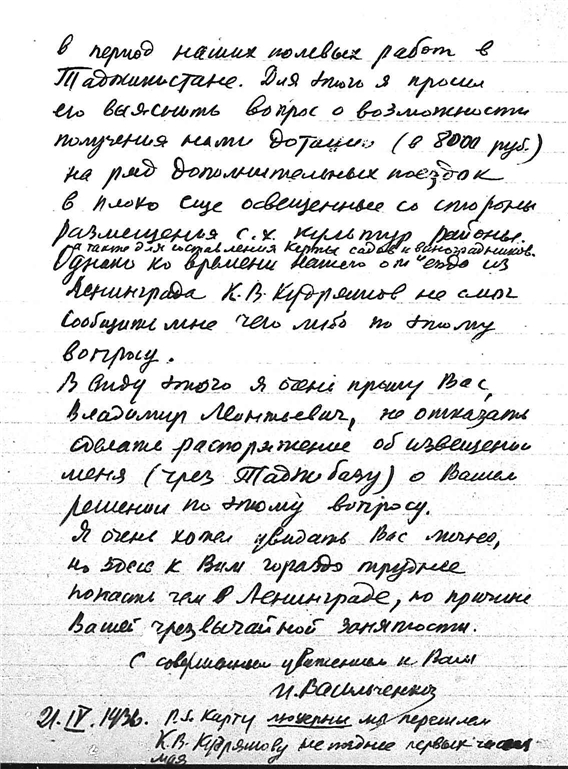 в период наших полевых работ в
Таджикистане. Для этого я просил
его выяснить вопрос о возможности
получения нами дотации (в 8000 руб.)
на ряд дополнительных поездок
в плохо еще освещенные со стороны
размещения с.х. культур районы.
а также для составления карты садов и виноградников.
Однако ко времени нашего отъезда из
Ленинграда К.В. Кудряшов не смог
сообщить мне чего либо по этому
вопросу.
В виду этого я очень прошу Вас,
Владимир Леонтьевич, не отказать
сделать распоряжение об извещении
меня (чрез Таджбазу) о Вашем
решении по этому вопросу.
Я очень хотел увидать Вас лично,
но здесь к Вам гораздо труднее
попасть чем в Ленинграде, по причине
Вашей чрезвычайной занятости.
С совершенным уважением к Вам
И. Васильченко
21.IV.1936. P.S. Карту люцерны мы перешлем
К.В. Кудряшову не позднее первых чисел
мая